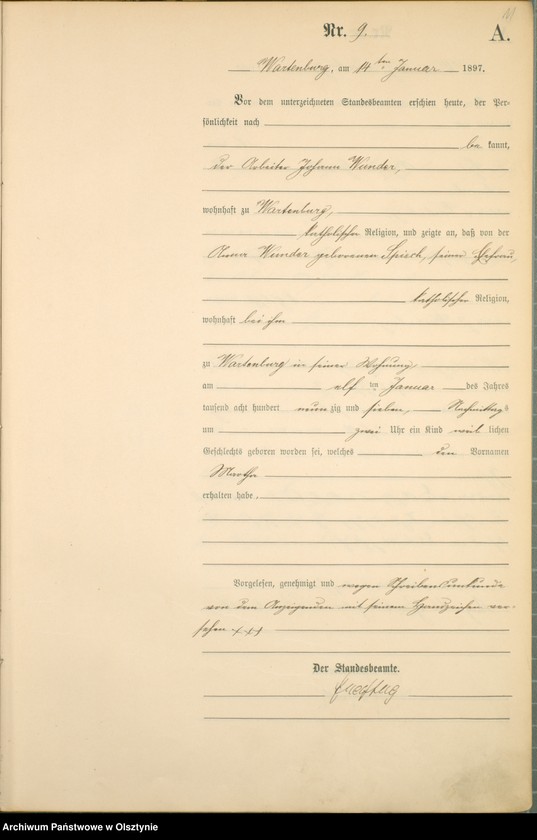 Nr. 9.
A.
Wartenburg, am 14ten Januar 1897.
Vor dem unterzeichneten Standesbeamten erschien heute, der Per-
sönlichkeit nach
be kannt,
der Arbeiter Johann Wunder,
wohnhaft zu Wartenburg,
katholischer Religion, und zeigte an, daß von der
Anna Wunder geborenen Spiesch, seiner Ehefrau,
katholischer Religion,
wohnhaft bei ihm
zu Wartenburg in seiner Wohnung
am elf ten Januar des Jahres
tausend acht hundert neun zig und sieben, Nachmittags
um zwei Uhr ein Kind weib lichen
Geschlechts geboren worden sei, welches den Vornamen
Martha
erhalten habe.
Vorgelesen, genehmigt und wegen Schreibensunkunde
von dem Anzeigenden mit seinem Handzeichen ver-
sehen +++
Der Standesbeamte.
Archiwum Państwowe w Olsztynie